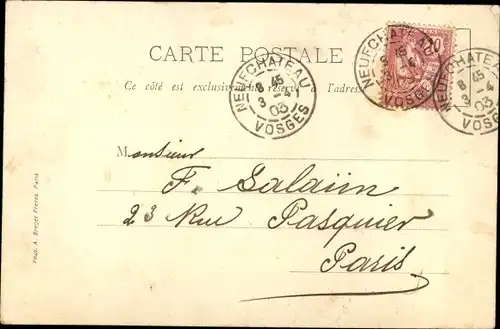 CARTE POSTALE
Ce côté est exclusivement réservé à l'adresse
NEUFCHATEAU
8 45
3 -4
03
VOSGES
NEUFCHATEAU
8 45
VOSGES
10
NEUFCHATEAU
8 45
3 -4
03
VOSGES
Monsieur
F. Salaün
23 Rue Pasquier
Paris
Phot. A. Breger Frères, Paris